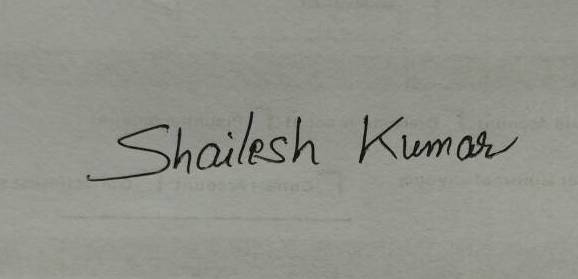 Shailesh Kumar